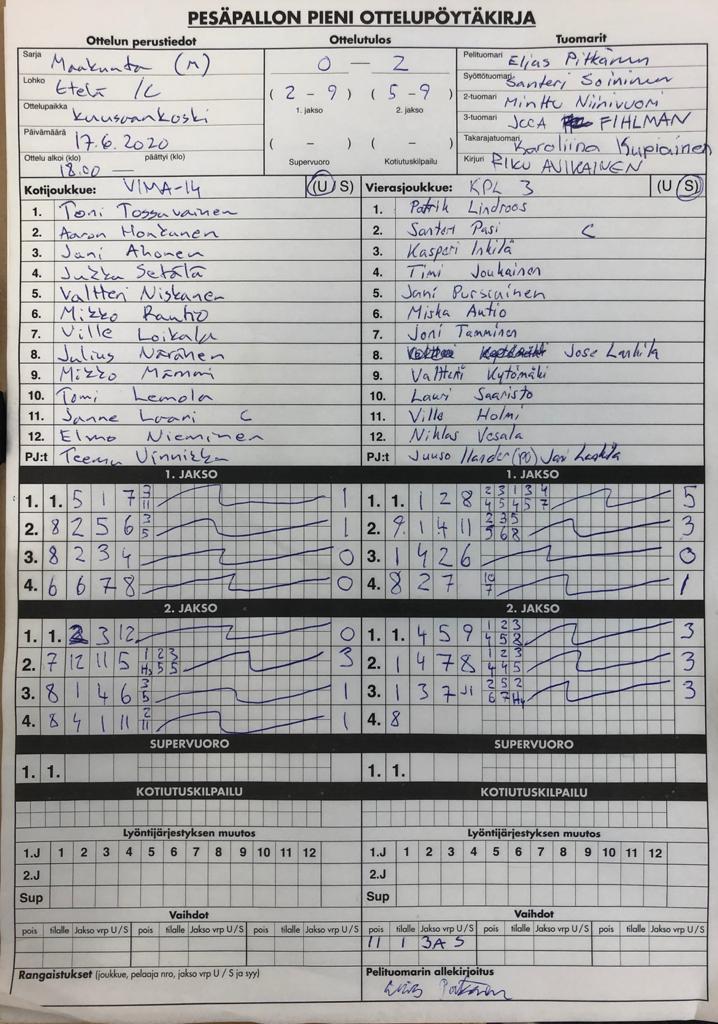 PESÄPALLON PIENI OTTELUPÖYTÄKIRJA
Ottelun perustiedot
Sarja Maakunta (M)
Lohko Etelä /C
Ottelupaikka Kuusaankoski
Päivämäärä 17.6.2020
Ottelu alkoi (klo) päättyi (klo)
18.00 —
Ottelutulos
0 — 2
(2 - 9) (5 - 9)
1. jakso 2. jakso
( - ) ( - )
Supervuoro Kotiutuskilpailu
Tuomarit
Pelituomari Elias Pitkänen
Syöttötuomari Santeri Soininen
2-tuomari Minttu Niinivuori
3-tuomari FIHLMAN
Takarajatuomari Karoliina Kupiainen
Kirjuri RIKU AVIKAINEN
Kotijoukkue: VIMA-14 (U S)
1. Toni Tossavainen
2. Aaron Honkanen
3. Jani Ahonen
4. Jukka Setälä
5. Valtteri Niskanen
6. Mikko Rautio
7. Ville Loikala
8. Julius Näränen
9. Mikko Mämmi
10. Tomi Lemola
11. Janne Laari C
12. Elmo Nieminen
PJ:t Teemu Vinnikka
Vierasjoukkue: KPL 3 (U S)
1. Patrik Lindroos
2. Santeri Pasi C
3. Kasperi Inkilä
4. Timi Joukainen
5. Jani Pursiainen
6. Miska Autio
7. Joni Tamminen
8. Jose Laukila
9. Valtteri Kytömäki
10. Lauri Saaristo
11. Ville Holmi
12. Niklas Vesala
PJ:t Juuso (PJ) Jari
1. JAKSO
1. 1. 5 1 7 3 11 1
2. 8 2 5 6 3 5 1
3. 8 2 3 4 0
4. 6 6 7 8 0
1. JAKSO
1. 1. 1 2 8 2 3 1 3 4 4 5 4 5 7 5
2. 9 1 4 11 2 3 5 5 6 8 3
3. 1 4 2 6 0
4. 8 2 7 10 7 1
2. JAKSO
1. 1. 2 3 12 0
2. 7 12 11 5 1 2 3 H3 5 5 3
3. 8 1 4 6 3 5 1
4. 8 4 1 11 2 11 1
2. JAKSO
1. 1. 4 5 9 1 2 3 4 5 8 3
2. 1 4 7 8 1 2 3 4 4 5 3
3. 1 3 7 J1 2 5 2 6 7 H4 3
4. 8
SUPERVUORO
1. 1.
SUPERVUORO
1. 1.
KOTIUTUSKILPAILU
KOTIUTUSKILPAILU
Lyöntijärjestyksen muutos
1.J 1 2 3 4 5 6 7 8 9 10 11 12
2.J
Sup
Lyöntijärjestyksen muutos
1.J 1 2 3 4 5 6 7 8 9 10 11 12
2.J
Sup
Vaihdot
pois tilalle Jakso vrp U / S pois tilalle Jakso vrp U / S pois tilalle Jakso vrp U / S
Vaihdot
pois tilalle Jakso vrp U / S pois tilalle Jakso vrp U / S pois tilalle Jakso vrp U / S
11 1 3A S
Rangaistukset (joukkue, pelaaja nro, jakso vrp U / S ja syy)
Pelituomarin allekirjoitus